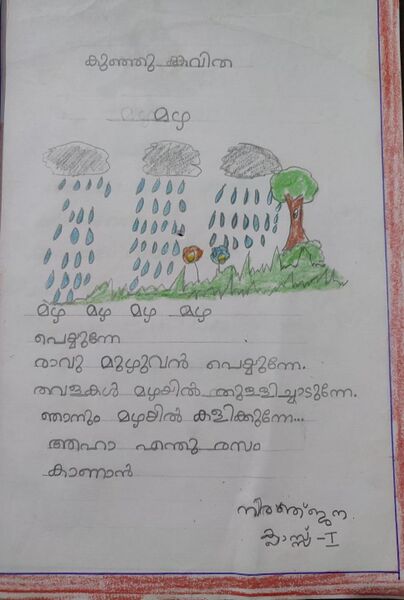 കുഞ്ഞു കവിത
മഴ
മഴ മഴ മഴ മഴ
പെയ്യുന്നേ
രാവു മുഴുവൻ പെയ്യുന്നേ.
തവളകൾ മഴയിൽ തുള്ളിച്ചാടുന്നേ.
ഞാനും മഴയിൽ കളിക്കുന്നേ...
ആഹാ എന്തു രസം
കാണാൻ
നിരഞ്ജന
ക്ലാസ്സ് -I